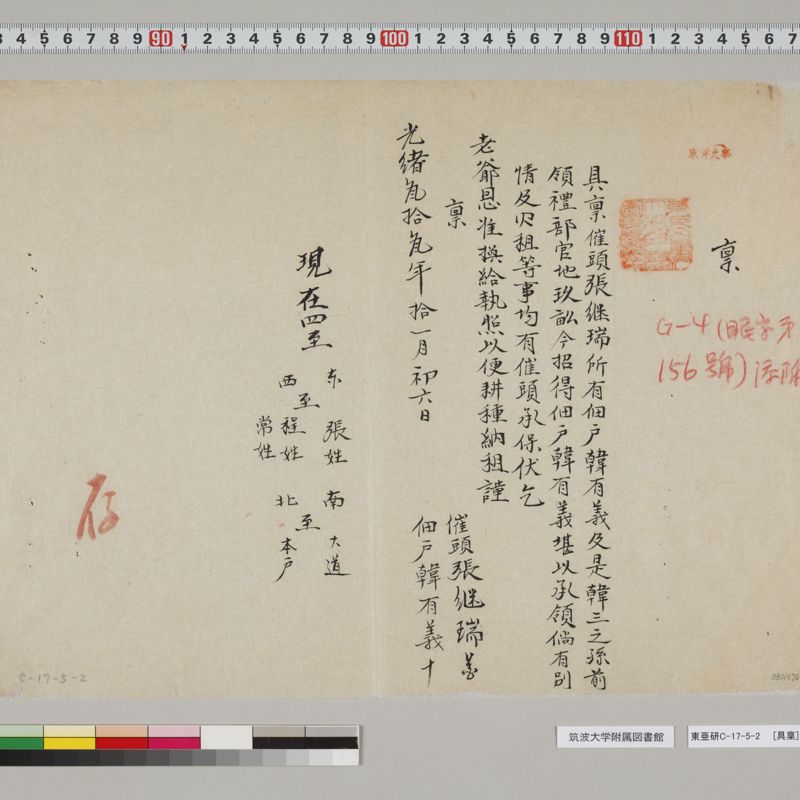 禀
具禀催頭張継瑞所有佃戸韓有義及是韓三之孫前
領禮部官地玖畝今招得佃戸韓有義堪以承領倘有別
情及欠租等事均有催頭承保伏乞
老爺恩准換給執照以便耕種納租謹
禀
催頭張継瑞
佃戸韓有義十
光緒弍拾弍年拾一月初六日
現在四至
东至張姓
西至程姓常姓
南至大道
北至本戸
存
G-4
156號)
C-17-5-2
筑波大学附属図書館
東亜研C-17-5-2 [具稟]
3 4 5 6 7 8 9 90 1 2 3 4 5 6 7 8 9 100 1 2 3 4 5 6 7 8 9 110 1 2 3 4 5 6 7